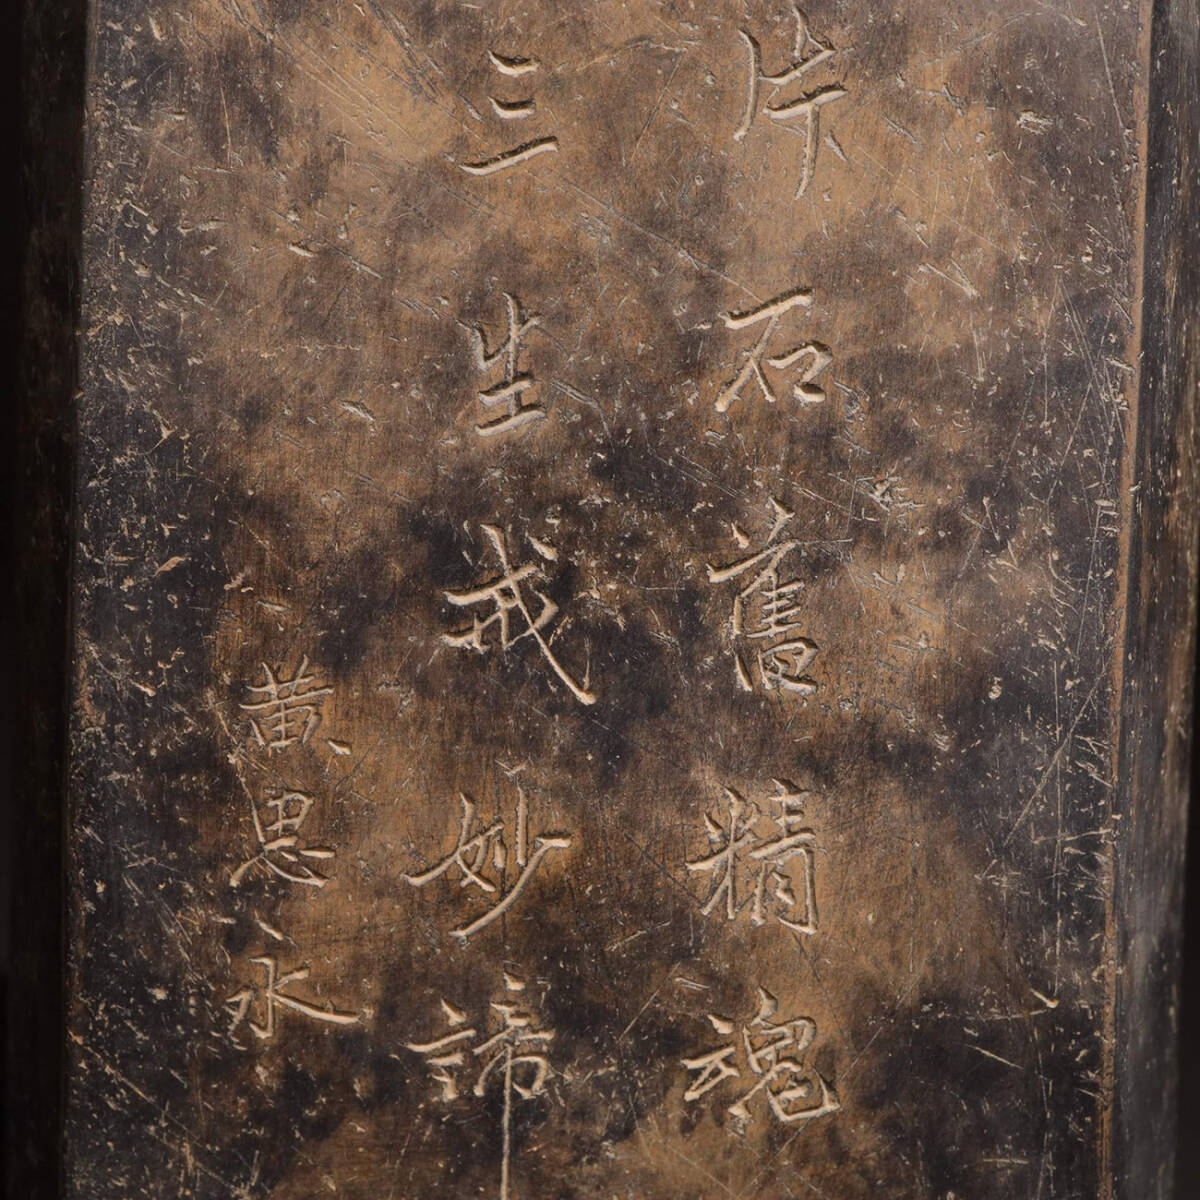 片石舊精魂
三生戒妙諦
黄思永